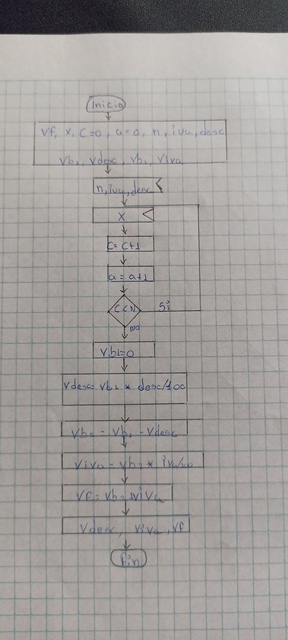 Inicio
Vf, x, c=0, a=0, n, iva, desc
Vb1, Vdesc, Vb2, Viva
n, iva, desc
x
c=c+1
a=a+1
c<N Si
No
Vb1=0
Vdesc=Vb1 * desc/100
Vb2 = Vb1 - Vdesc
Viva = Vb2 * iva/100
Vf=Vb2+Viva
Vdesc, Viva, Vf
Fin